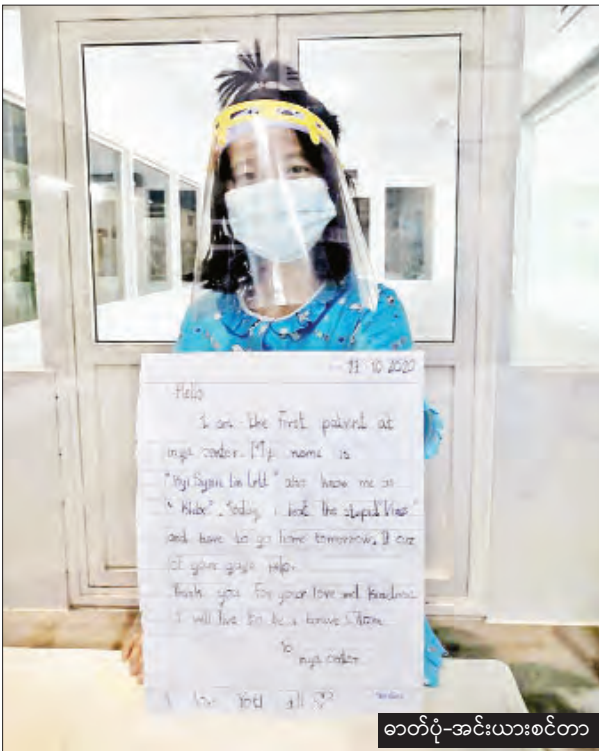 11 10 2020
Hello
I am the First patient at
inya center. My name is
"Kyi Syin Lin Lett" also know me as
" ". Today, i beat the stupid Virus
and have to go home tomorrow. It coz
of your guys help.
Thank you For your love and kindness
I will live to be a brave
To
inya center
I love You all ♡
ဓာတ်ပုံ-အင်းယားစင်တာ